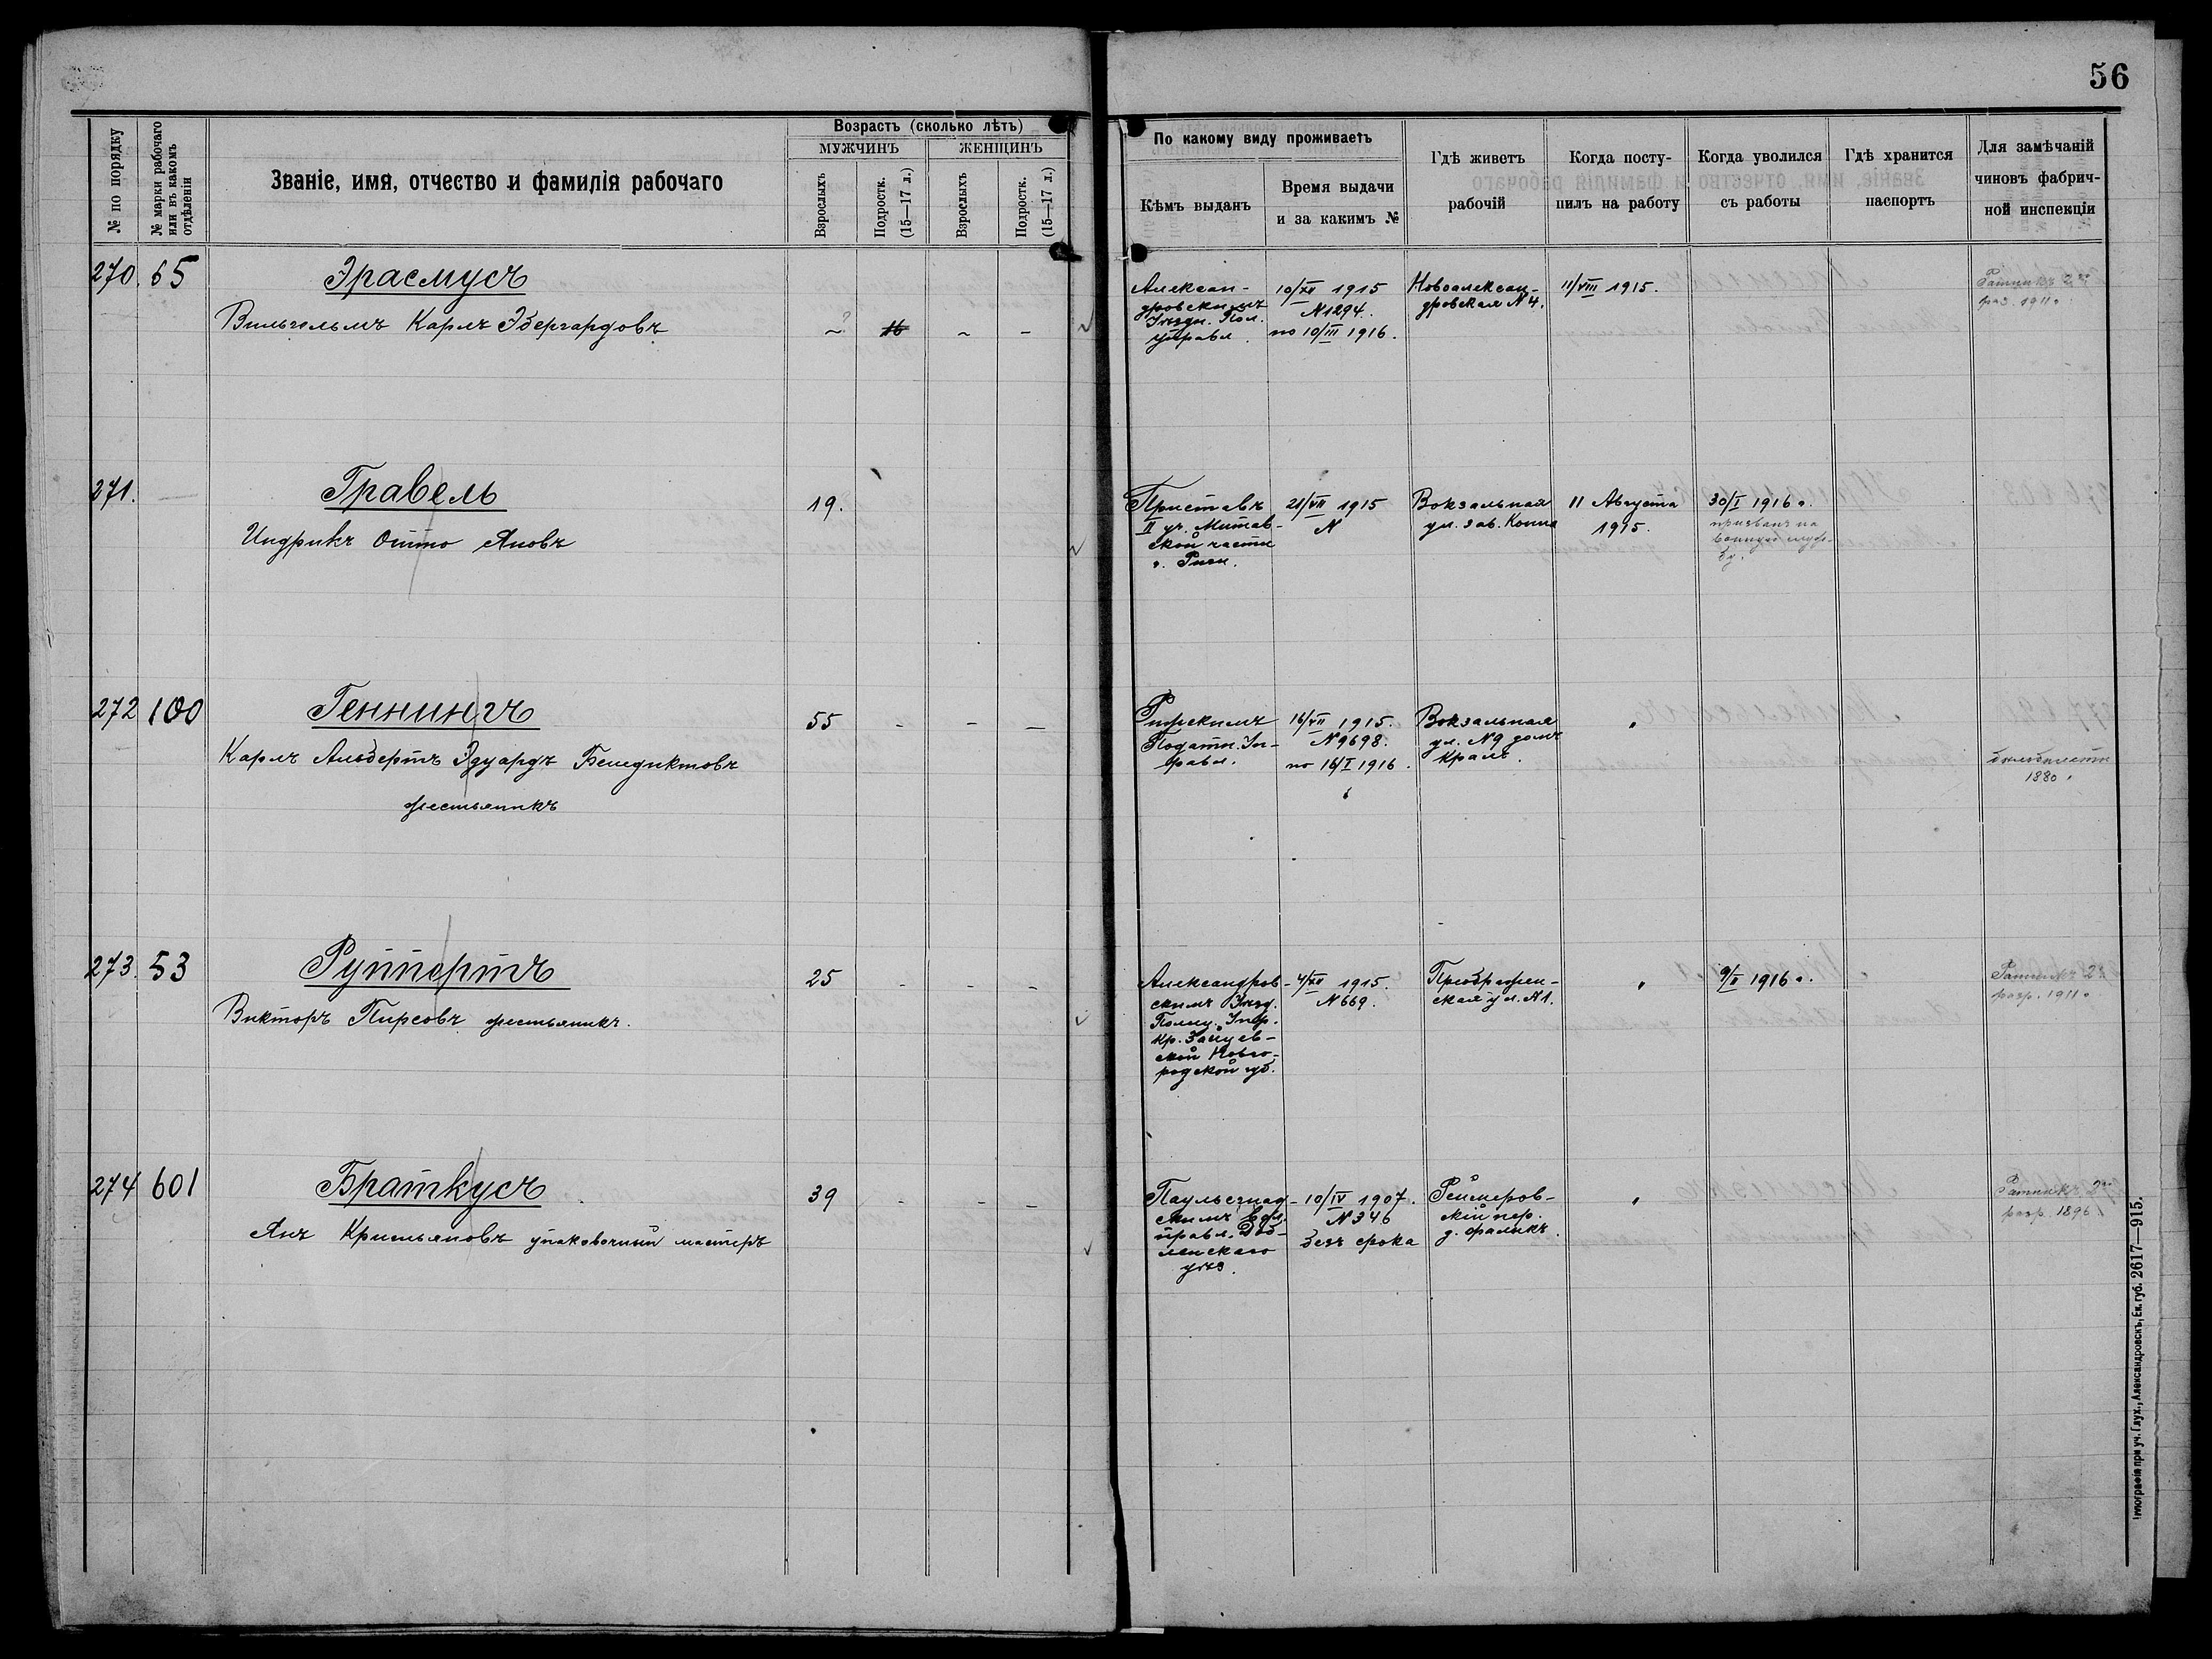 56
№ по порядку
№ марки рабочаго
или въ какомъ
отдѣленіи
Званіе, имя, отчество и фамилія рабочаго
Возрастъ (сколько лѣтъ)
МУЖЧИНЪ
ЖЕНЩИНЪ
Взрослыхъ
Подростк.
(15—17 л.)
Взрослыхъ
Подростк.
(15—17 л.)
По какому виду проживаетъ
Кѣмъ выданъ
Время выдачи
и за какимъ №
Гдѣ живетъ
рабочій
Когда посту-
пилъ на работу
Когда уволился
съ работы
Гдѣ хранится
паспортъ
Для замѣчаній
чиновъ фабрич-
ной инспекціи
270. 65
Эрасмусъ
Вильгельмъ Карлъ Эбергардовъ
~ ? 16 ~ -
Алексан-
дровскимъ
Уѣздн. Пол.
Управл.
10/XII 1915
N 1294.
по 10/III 1916.
Новоалексан-
дровская N 4.
11/VIII 1915.
Ратникъ 2го
раз. 1911 г.
271.
Гравель
Индрикъ Отто Яновъ
19.
Приставъ
II уч. Митав-
ской части
г. Риги.
21/VII 1915
N
Вокзальная
ул. зав. Коппа
11 Августа
1915.
30/I 1916 г.
призванъ на
военную служ-
бу.
272 100
Геннингъ
Карлъ Альбертъ Эдуардъ Бенедиктовъ
крестьянинъ
55 - - -
Рижскимъ
Податн. Уп-
равл.
16/VII 1915.
N 9698.
по 16/I 1916.
Вокзальная
ул. N 9 домъ
Краль.
"
1880.
273. 53
Руппортъ
Викторъ Пирсовъ крестьянинъ.
25 - - -
Александров-
скимъ Уѣзд.
Полиц. Упр.
кр. Зайцев-
ской Новго-
родской губ.
4/XII 1915.
N 669.
Преображен-
ская ул. N 1.
"
9/II 1916 г.
Ратникъ 2й
разр. 1911 г.
274 601
Браткусъ
Янъ Кристьяновъ упаковочный мастеръ
39 - - -
Паульсгнад-
скимъ Вол.
правл. Доб-
ленскаго
уѣз.
10/IV 1907.
N 346
безъ срока
Реймеров-
скій пер.
д.
"
Ратникъ 2го
разр. 1896 г.
Типографія при уч. Глух., Александровскъ, Ек. губ. 2617—915.